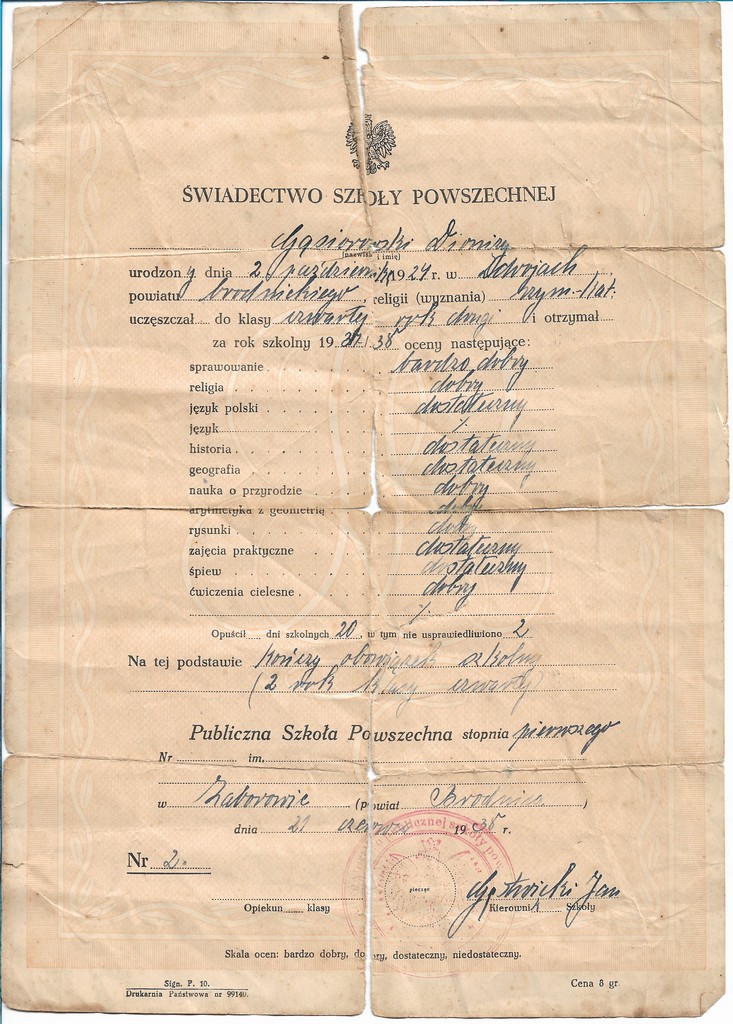 ŚWIADECTWO SZKOŁY POWSZECHNEJ
Gąsiorowski Dionizy
(nazwisko i imię)
urodzony dnia 2 października 1924 r. w
powiatu brodnickiego, religii (wyznania) rzym.-kat.
uczęszczał do klasy czwartej rok drugi i otrzymał
za rok szkolny 1937/38 oceny następujące:
sprawowanie bardzo dobry
religia dobry
język polski dostateczny
język
historia dostateczny
geografia dostateczny
nauka o przyrodzie dobry
arytmetyka z geometrią dobry
rysunki dobry
zajęcia praktyczne dostateczny
śpiew dostateczny
ćwiczenia cielesne dobry
Opuścił dni szkolnych 20, w tym nie usprawiedliwiono 2
Na tej podstawie kończy obowiązek szkolny
(2 rok klasy czwartej)
Publiczna Szkoła Powszechna stopnia pierwszego
Nr im.
w Zaborowie (powiat Brodnica)
dnia 21 czerwca 1938 r.
Nr 2.
pieczęć
Jan
Opiekun klasy Kierownik Szkoły
Skala ocen: bardzo dobry, dobry, dostateczny, niedostateczny.
Sign. P. 10.
Drukarnia Państwowa nr 99140.
Cena 8 gr.